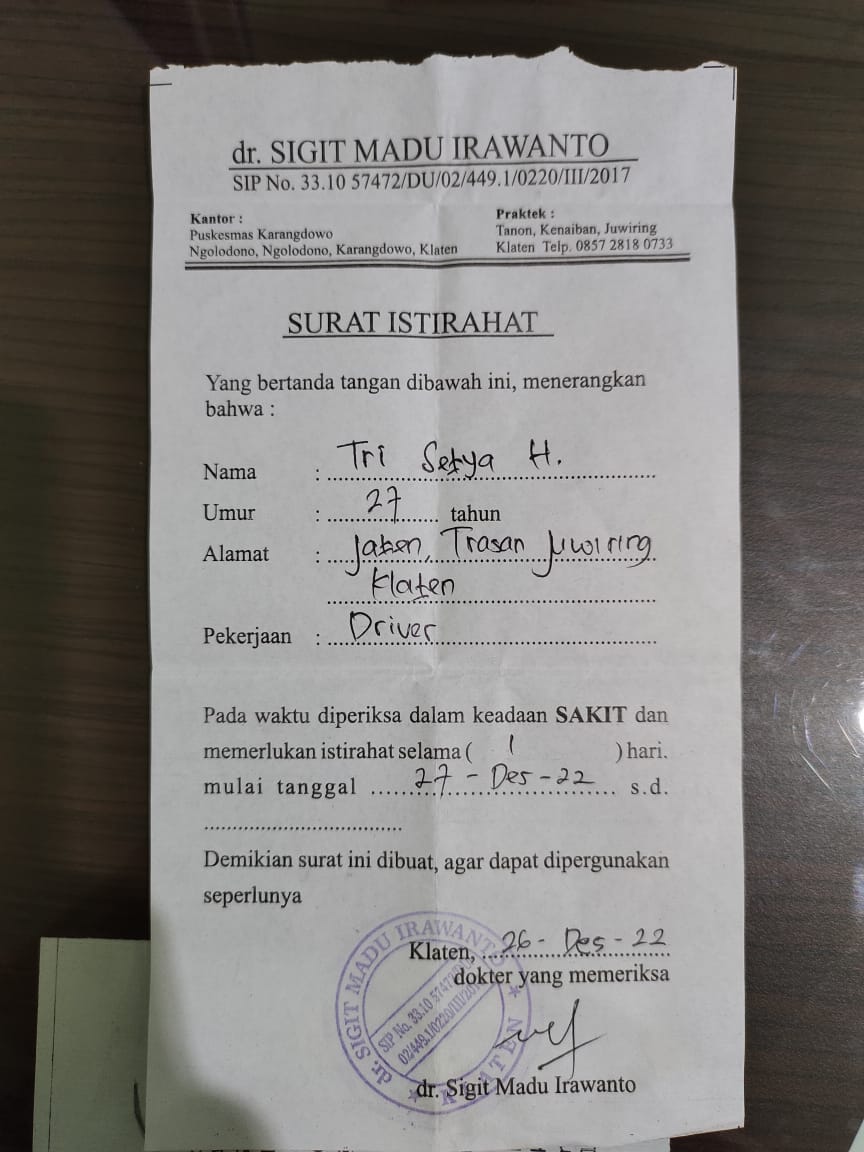 dr. SIGIT MADU IRAWANTO
SIP No. 33.10 57472/DU/02/449.1/0220/III/2017
Kantor :
Puskesmas Karangdowo
Ngolodono, Ngolodono, Karangdowo, Klaten
Praktek :
Tanon, Kenaiban, Juwiring
Klaten Telp. 0857 2818 0733
SURAT ISTIRAHAT
Yang bertanda tangan dibawah ini, menerangkan
bahwa :
Nama : Tri Setya H.
Umur : 27 tahun
Alamat : Jaten, Trasan Juwiring
Klaten
Pekerjaan : Driver
Pada waktu diperiksa dalam keadaan SAKIT dan
memerlukan istirahat selama ( 1 ) hari.
mulai tanggal 27 - Des - 22 s.d.
Demikian surat ini dibuat, agar dapat dipergunakan
seperlunya
Klaten, 26 - Des - 22
dokter yang memeriksa
dr. SIGIT MADU IRAWANTO
SIP No. 33.10 57472
02/449.1/0220/III/20
KLATEN
dr. Sigit Madu Irawanto